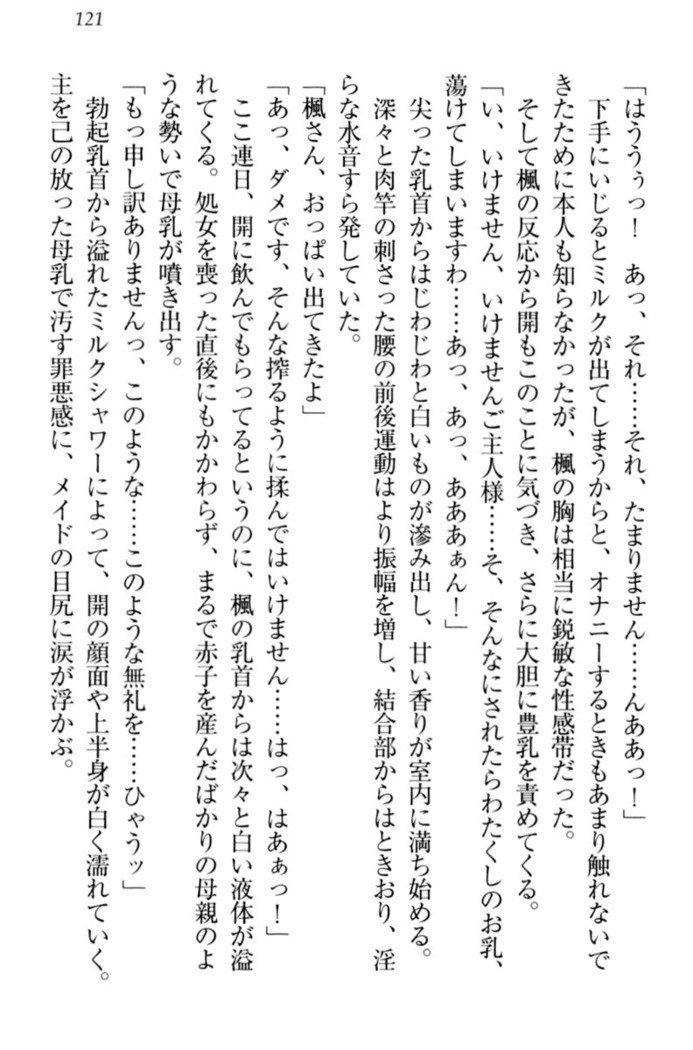 121
「はううぅっ！　あっ、それ……それ、たまりません……んああっ！」
　下手にいじるとミルクが出てしまうからと、オナニーするときもあまり触れないで
きたために本人も知らなかったが、楓の胸は相当に鋭敏な性感帯だった。
　そして楓の反応から開もこのことに気づき、さらに大胆に豊乳を責めてくる。
「い、いけません、いけませんご主人様……そ、そんなにされたらわたくしのお乳、
蕩けてしまいますわ……あっ、あっ、あああぁん！」
　尖った乳首からはじわじわと白いものが滲み出し、甘い香りが室内に満ち始める。
　深々と肉竿の刺さった腰の前後運動はより振幅を増し、結合部からはときおり、淫
らな水音すら発していた。
「楓さん、おっぱい出てきたよ」
「あっ、ダメです、そんな搾るように揉んではいけません……はっ、はあぁっ！」
　ここ連日、開に飲んでもらってるというのに、楓の乳首からは次々と白い液体が溢
れてくる。処女を喪った直後にもかかわらず、まるで赤子を産んだばかりの母親のよ
うな勢いで母乳が噴き出す。
「もっ申し訳ありませんっ、このような……このような無礼を……ひゃうッ」
　勃起乳首から溢れたミルクシャワーによって、開の顔面や上半身が白く濡れていく。
主を己の放った母乳で汚す罪悪感に、メイドの目尻に涙が浮かぶ。